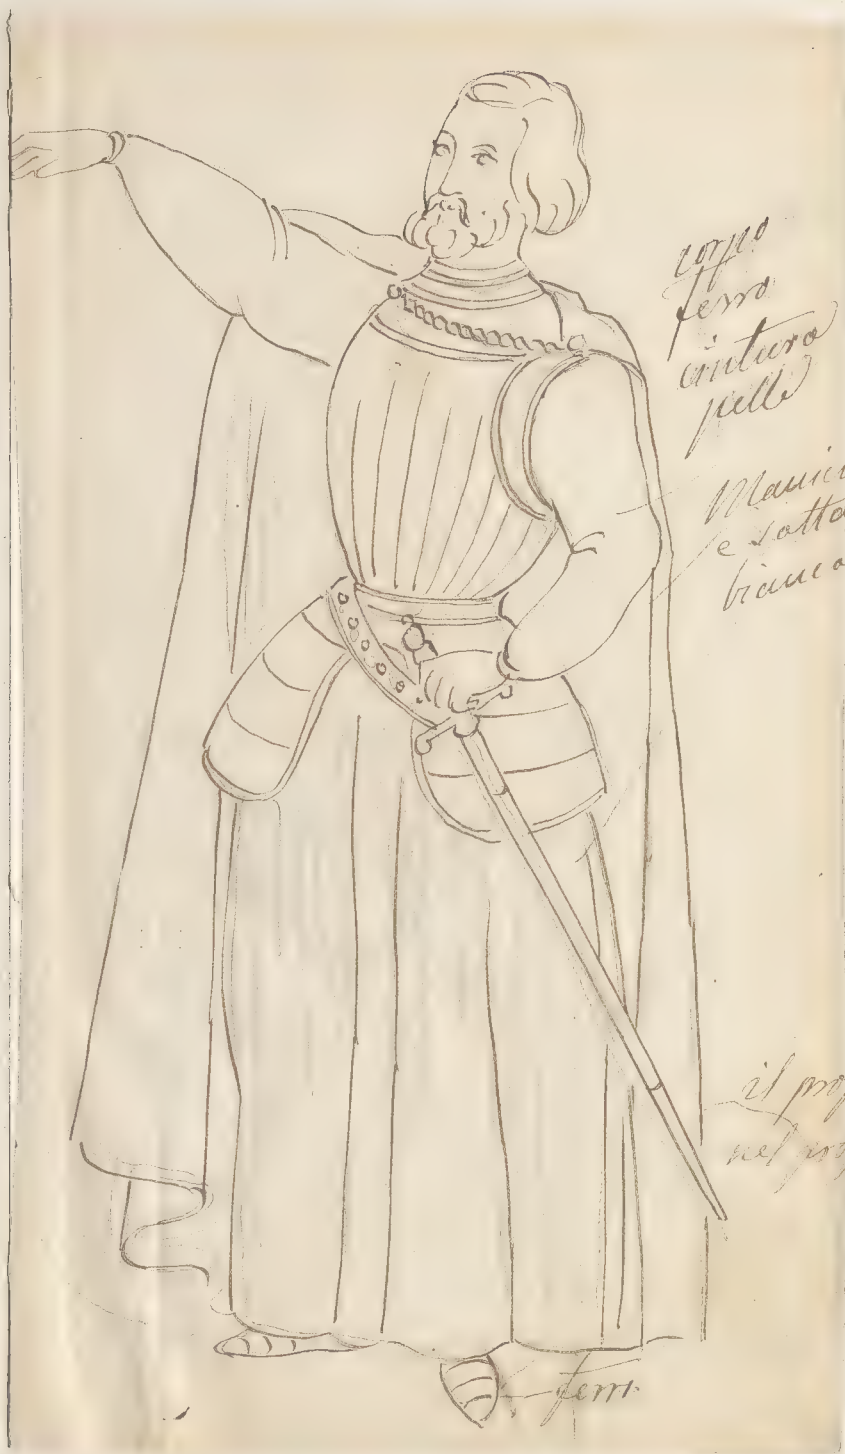 corpo
ferro
cintura
pelle
Manic
e sotto
bianco
il pro
nel pro
ferro